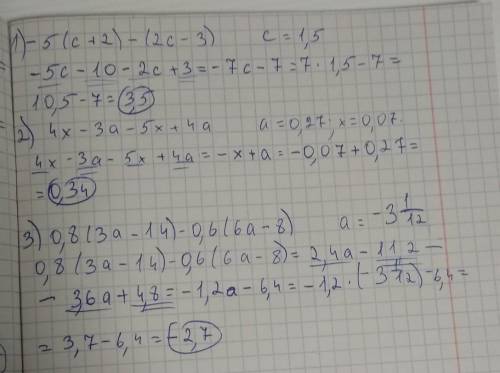 1) -5(c+2) - (2c-3)   c = 1,5
-5c - 10 - 2c + 3 = -7c - 7 = 7 · 1,5 - 7 =
10,5 - 7 = 35
2) 4x - 3a - 5x + 4a   a = 0,27; x = 0,07.
4x - 3a - 5x + 4a = -x + a = -0,07 + 0,27 =
= 0,34
3) 0,8(3a - 14) - 0,6(6a - 8)   a = -3 1/12
0,8(3a - 14) - 0,6(6a - 8) = 2,4a - 11 2 -
- 3,6a + 4,8 = -1,2a - 6,4 = -1,2 · (-3 1/12) - 6,4 =
= 3,7 - 6,4 = -2,7